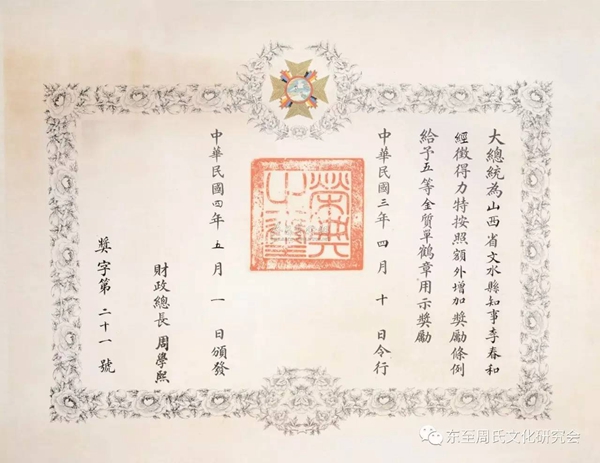 大總統為山西省文水縣知事李春和
經徵得力特按照額外增加獎勵條例
給予五等金質單鶴章用示獎勵
中華民國三年四月十日令行
榮典之璽
中華民國四年五月一日頒發
財政總長周學熙
獎字第二十一號
东至周氏文化研究会